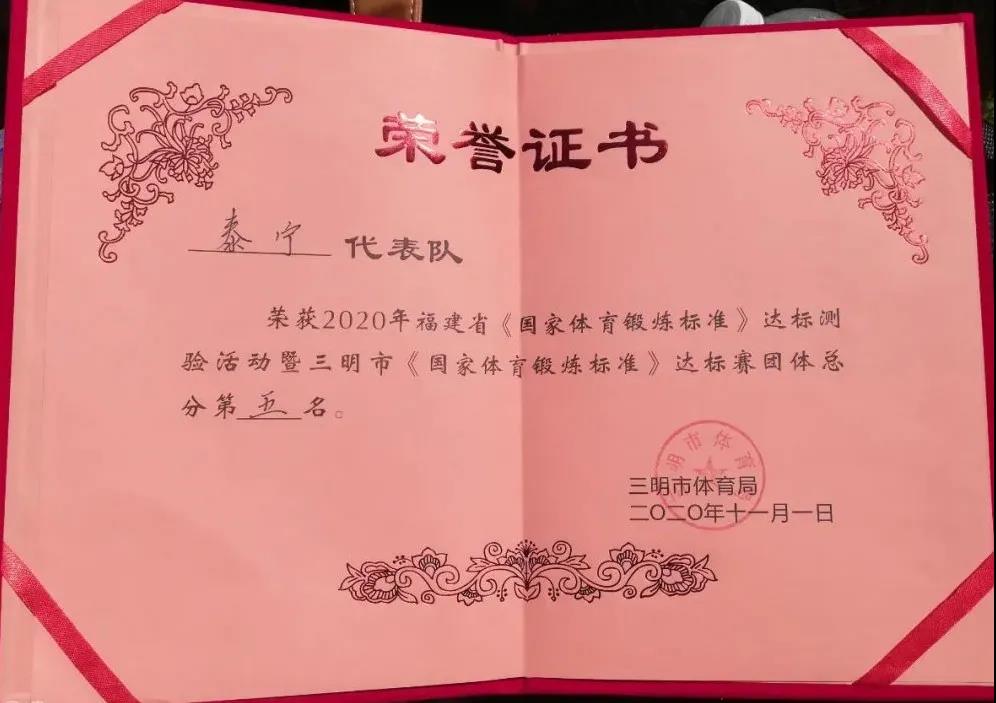 荣誉证书
泰宁 代表队
荣获2020年福建省《国家体育锻炼标准》达标测
验活动暨三明市《国家体育锻炼标准》达标赛团体总
分第五名。
三明市体育局
二〇二〇年十一月一日